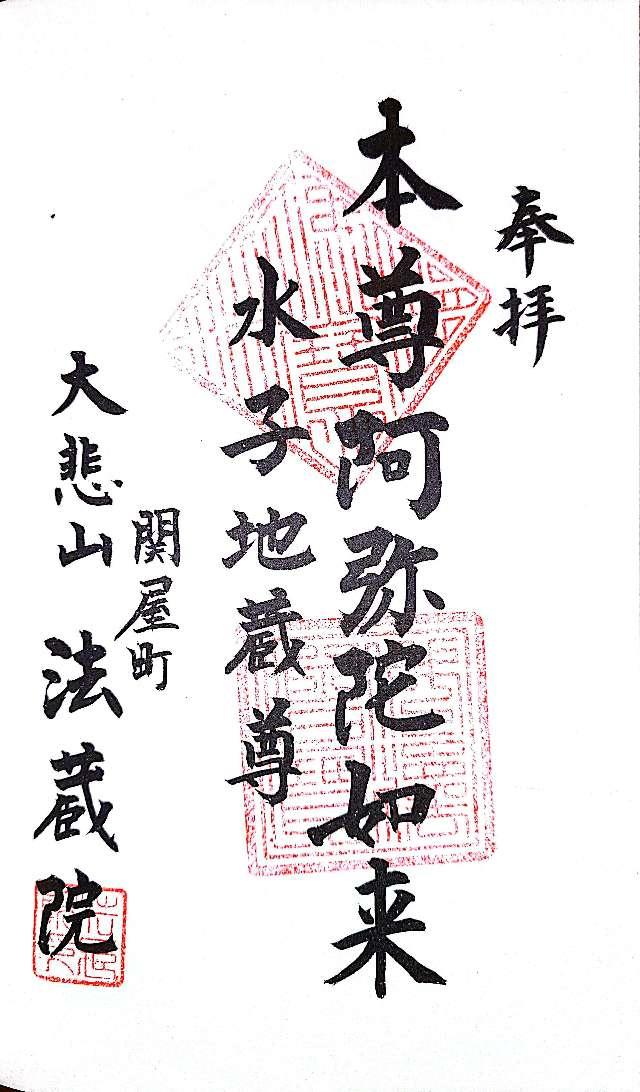 奉拝
本尊阿弥陀如来
水子地蔵尊
関屋町
大悲山 法蔵院